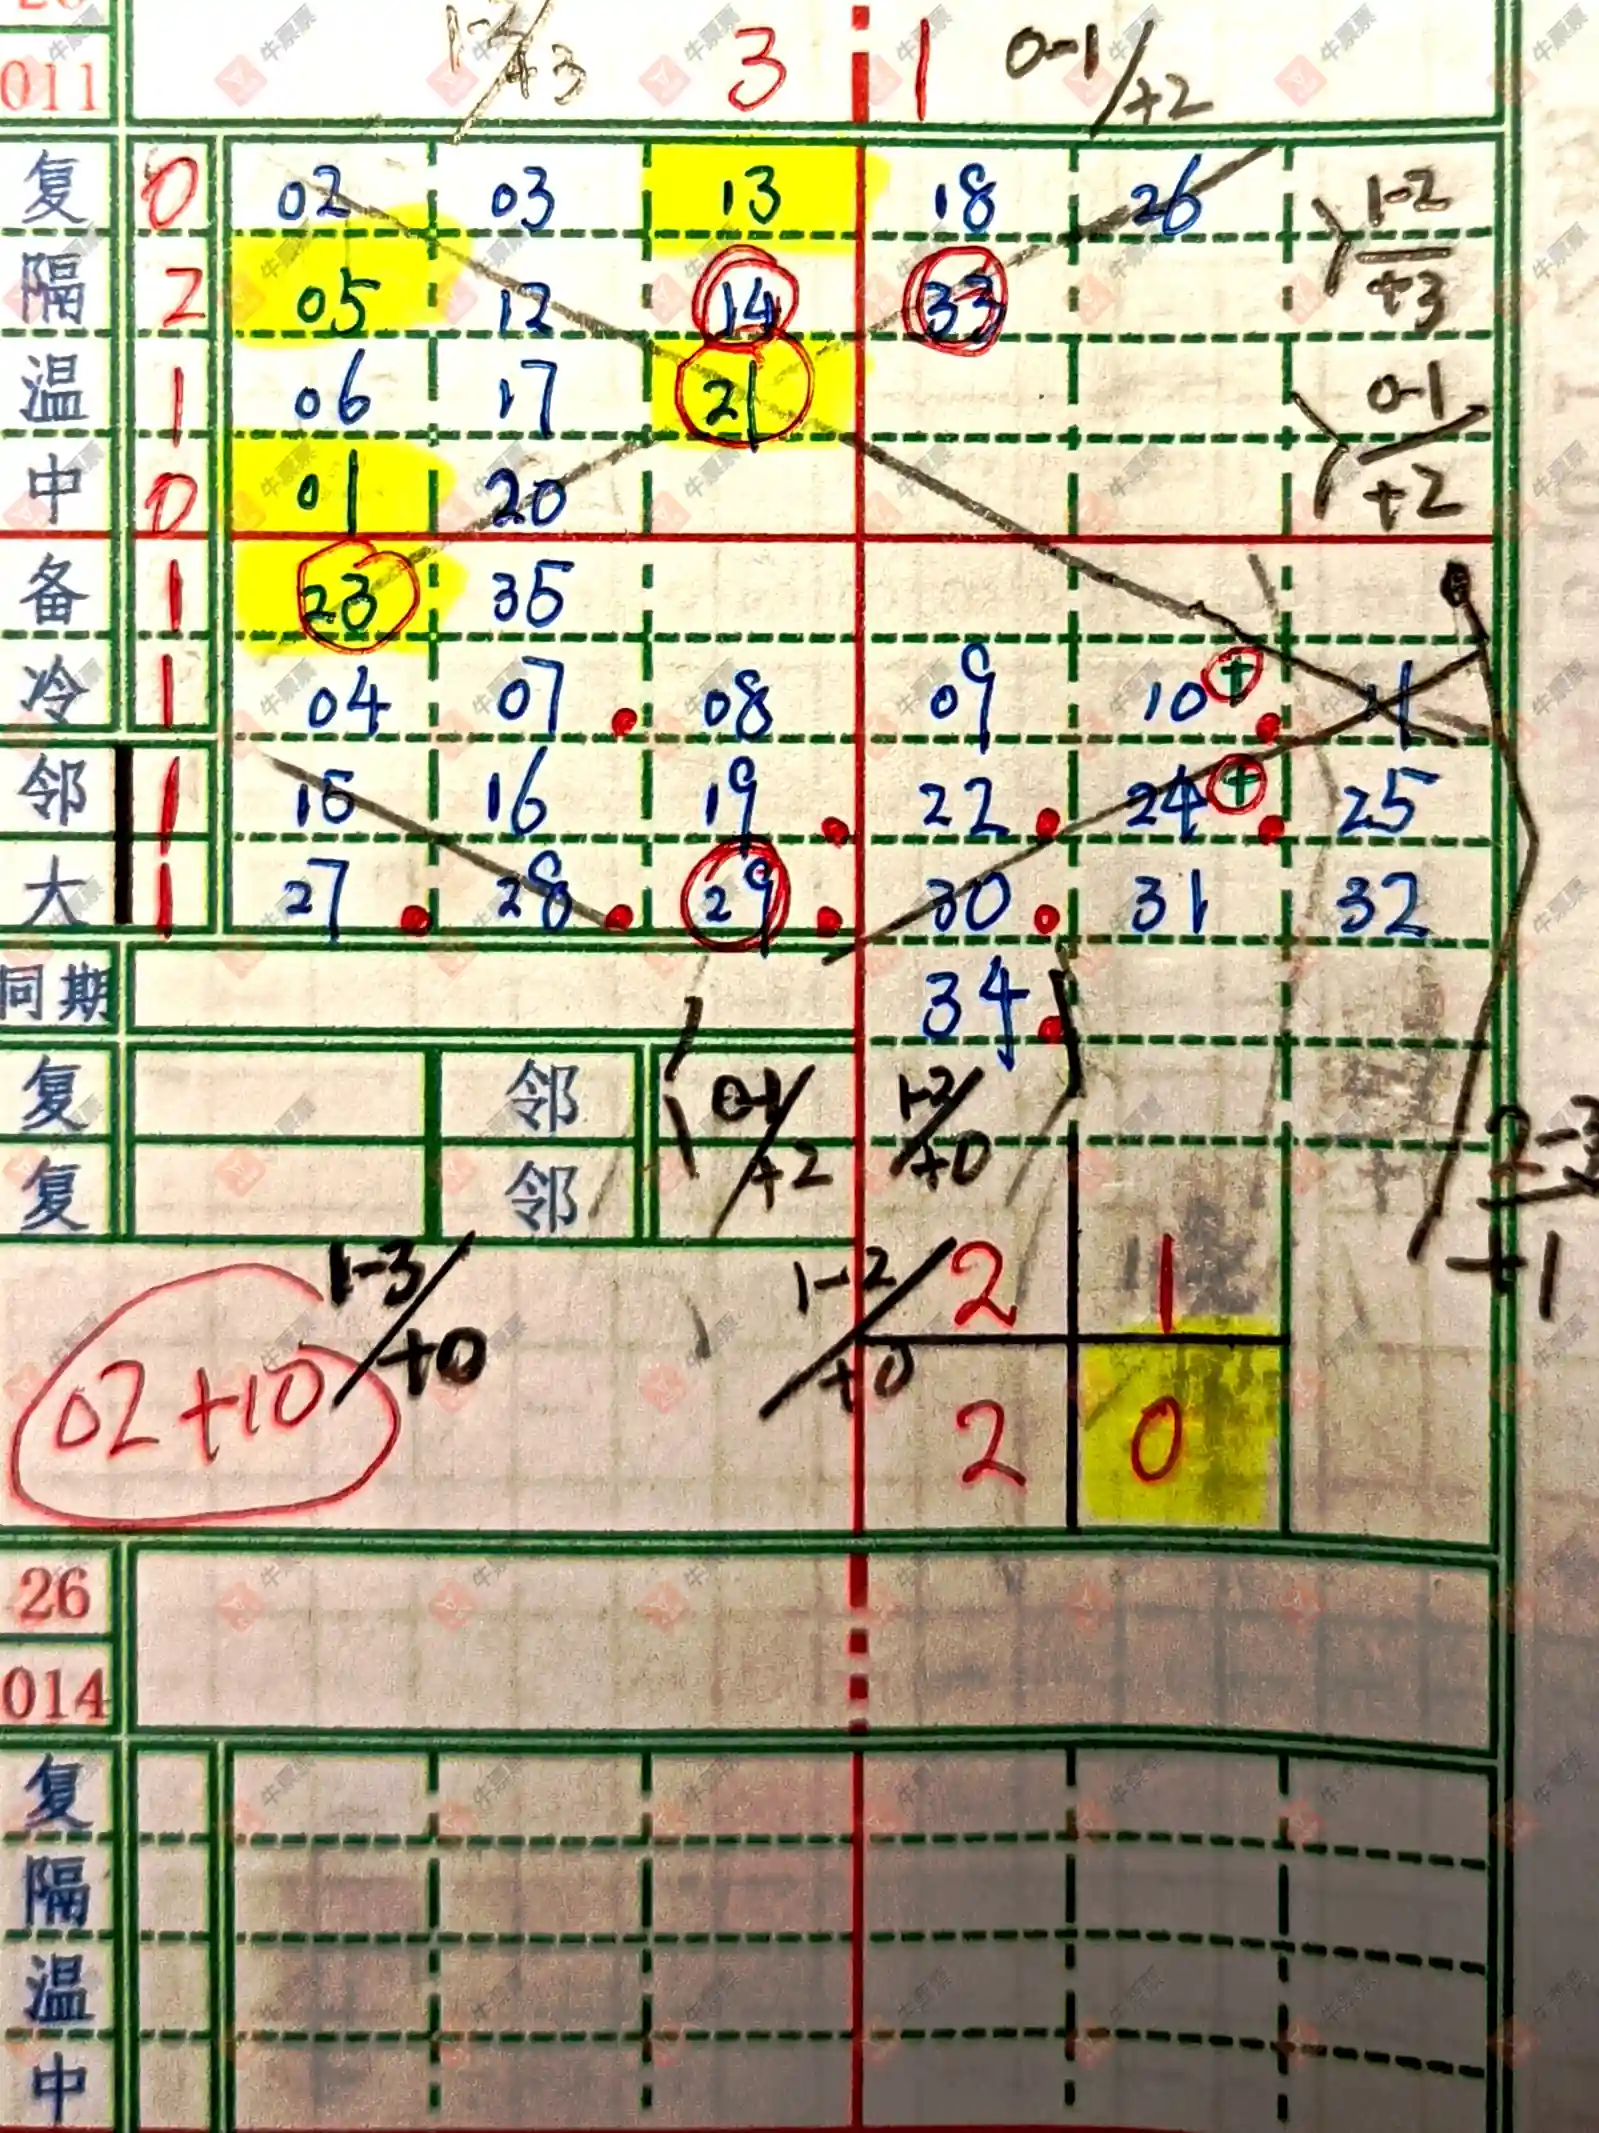 011 1-2/+3 3 1 0-1/+2
复 0 02 03 13 18 26 1-2/+3
隔 2 05 12 14 33
温 1 06 17 21 0-1/+2
中 0 01 20
备 1 23 35
冷 1 04 07 08 09 10 + 11
邻 1 15 16 19 22 24 + 25
大 1 27 28 29 30 31 32
同期 34
复 邻 0-1/+2 1-2/+0
复 邻 2-3/+1
1-3/+0 1-2/+0 2 1
02+10 2 0
26
014
复
隔
温
中
牛票票